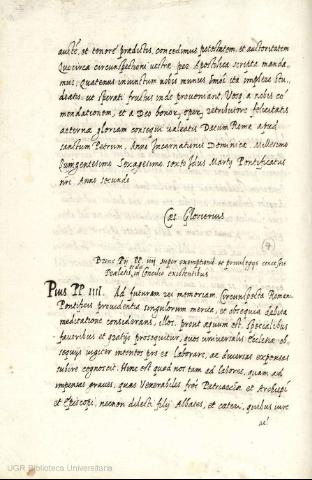 auctē, et tenore prædictos, concedimus potestatem, et auctoritatem
Quocirca circunspectioni vestræ per Apostolica scripta manda
mus, Quatenus iniunctum nobis munus Omne ita impleas stu,
deatis, ut sperati fructus inde proveniant. Vosq a nobis co
mendationem, et a Deo bonor, oper, retributore felicitatis
æternæ gloriam consequi valeatis Datum Romæ apud
sanctum Petrum, Anno Incarnationis Dominicæ. Millesimo
Quingentesimo Sexagesimo sexto Idus Martij Pontificatus
nri Anno secundo
Cæs Glorierius
7
Breve Pij PP. iiij super exemptionib et privilegijs concessis
Prælatis, in Concilio existentibus
Pius PP. IIII. Ad futuram rei memoriam Circunspecta Romani
Pontificis providentia singulorum merita, et obsequia debita
meditatione considerans, illos prout æquum est, specialibus
favoribus et gratijs prosequitur, quos universalis Ecclesiæ ob,
sequijs iugiter intentos pro ea laborare, ac diversas expensas
subire cognoscit. Hinc est quod nos tam ad labores, quam ad
impensas graves, quas Venerabiles frēs Patriarchæ et Archiepī
et Episcopi, necnon dilecti filij Abbates, et cæteri, quibus iure
UGR Biblioteca Universitaria